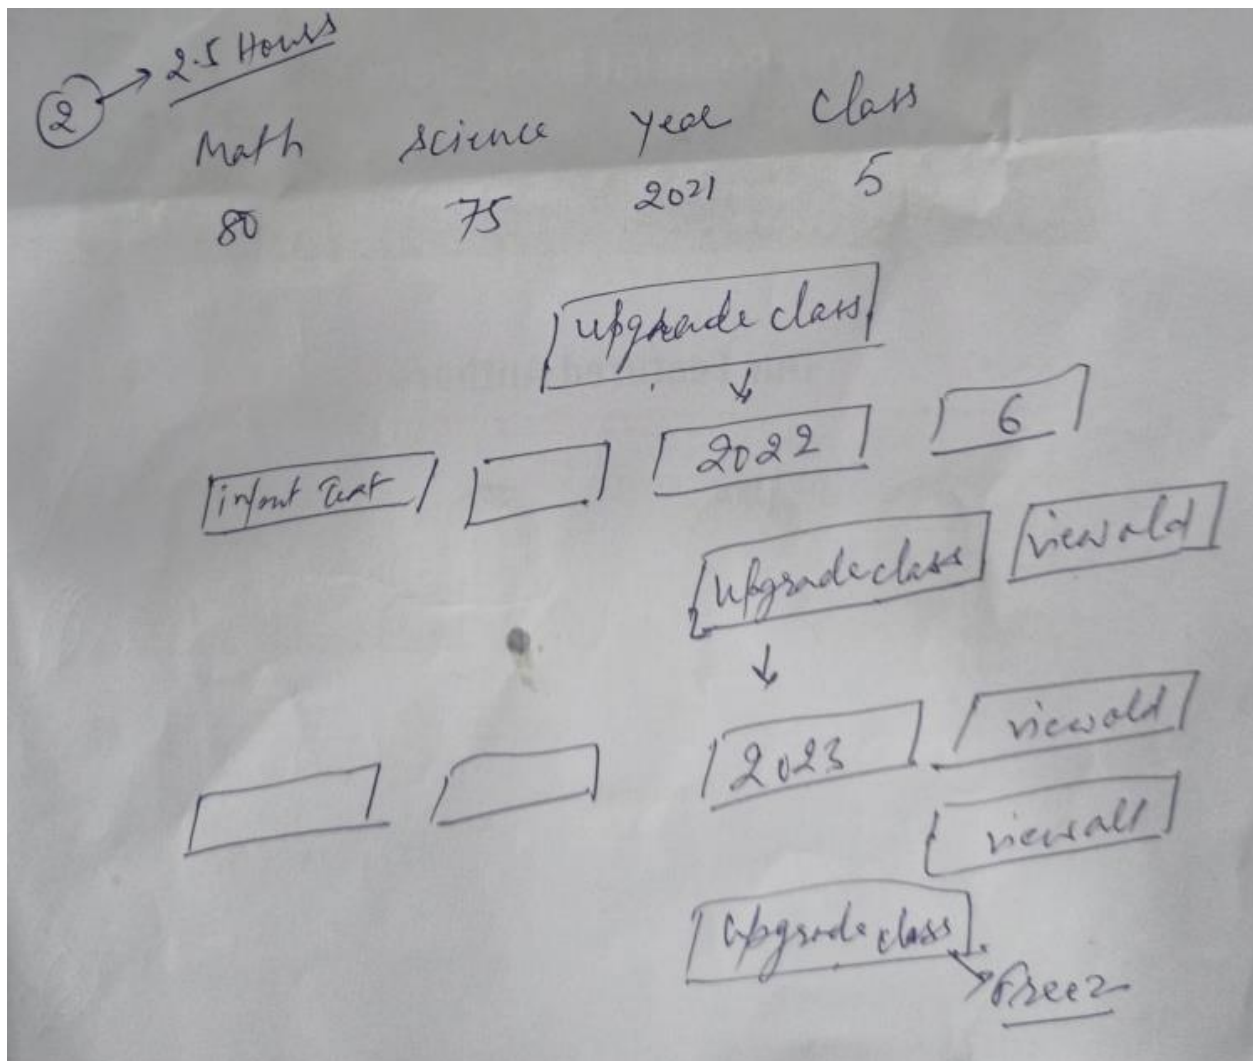 2 → 2.5 Hours
Math science year Class
80 75 2021 5
upgrade class
↓
input text 2022 6
upgrade class view old
↓
2023 view old
view all
upgrade class
→ Freez